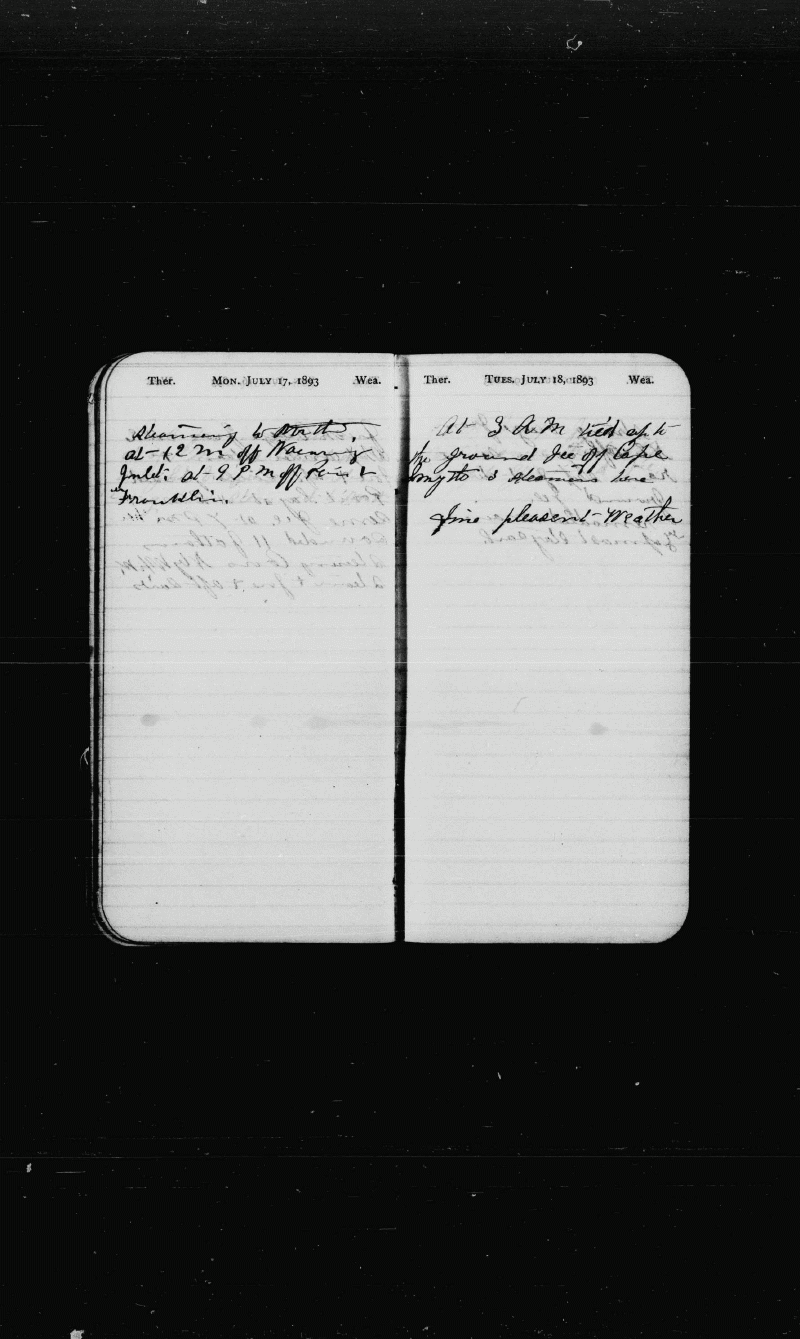 Ther. MON. JULY 17, 1893 Wea.
Steaming to North,
at 12 M off Waening
Inlet. at 9 P M off Point
Franklin.
Ther. TUES. JULY 18, 1893 Wea.
At 3 A.M tied up to
the ground Ice off Cape
Smyth 3 steamers here
Fine pleasent Weather